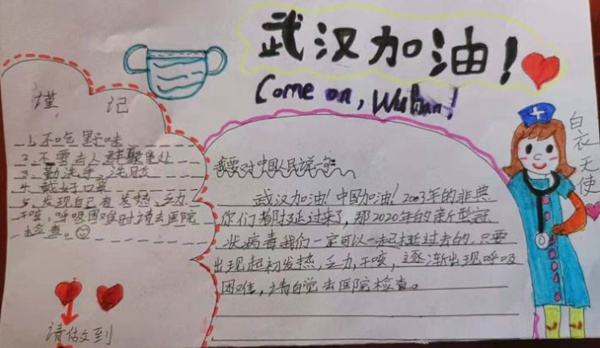 武汉加油！
Come on, Wuhan!
谨记
1、不吃野味
2、不要去人群聚集处
3、勤洗手、洗鼻
4、戴好口罩
5、发现自己有发热，乏力
干咳，呼吸困难时请去医院
检查。
请做到
我要对中国人民说
武汉加油！中国加油！2003年的非典
你们都挺过来了，那2020年的新型冠
状病毒我们一定可以一起挺过去的，只要
出现起初发热，乏力，干咳，逐渐出现呼吸
困难，请自觉去医院检查。
白衣天使